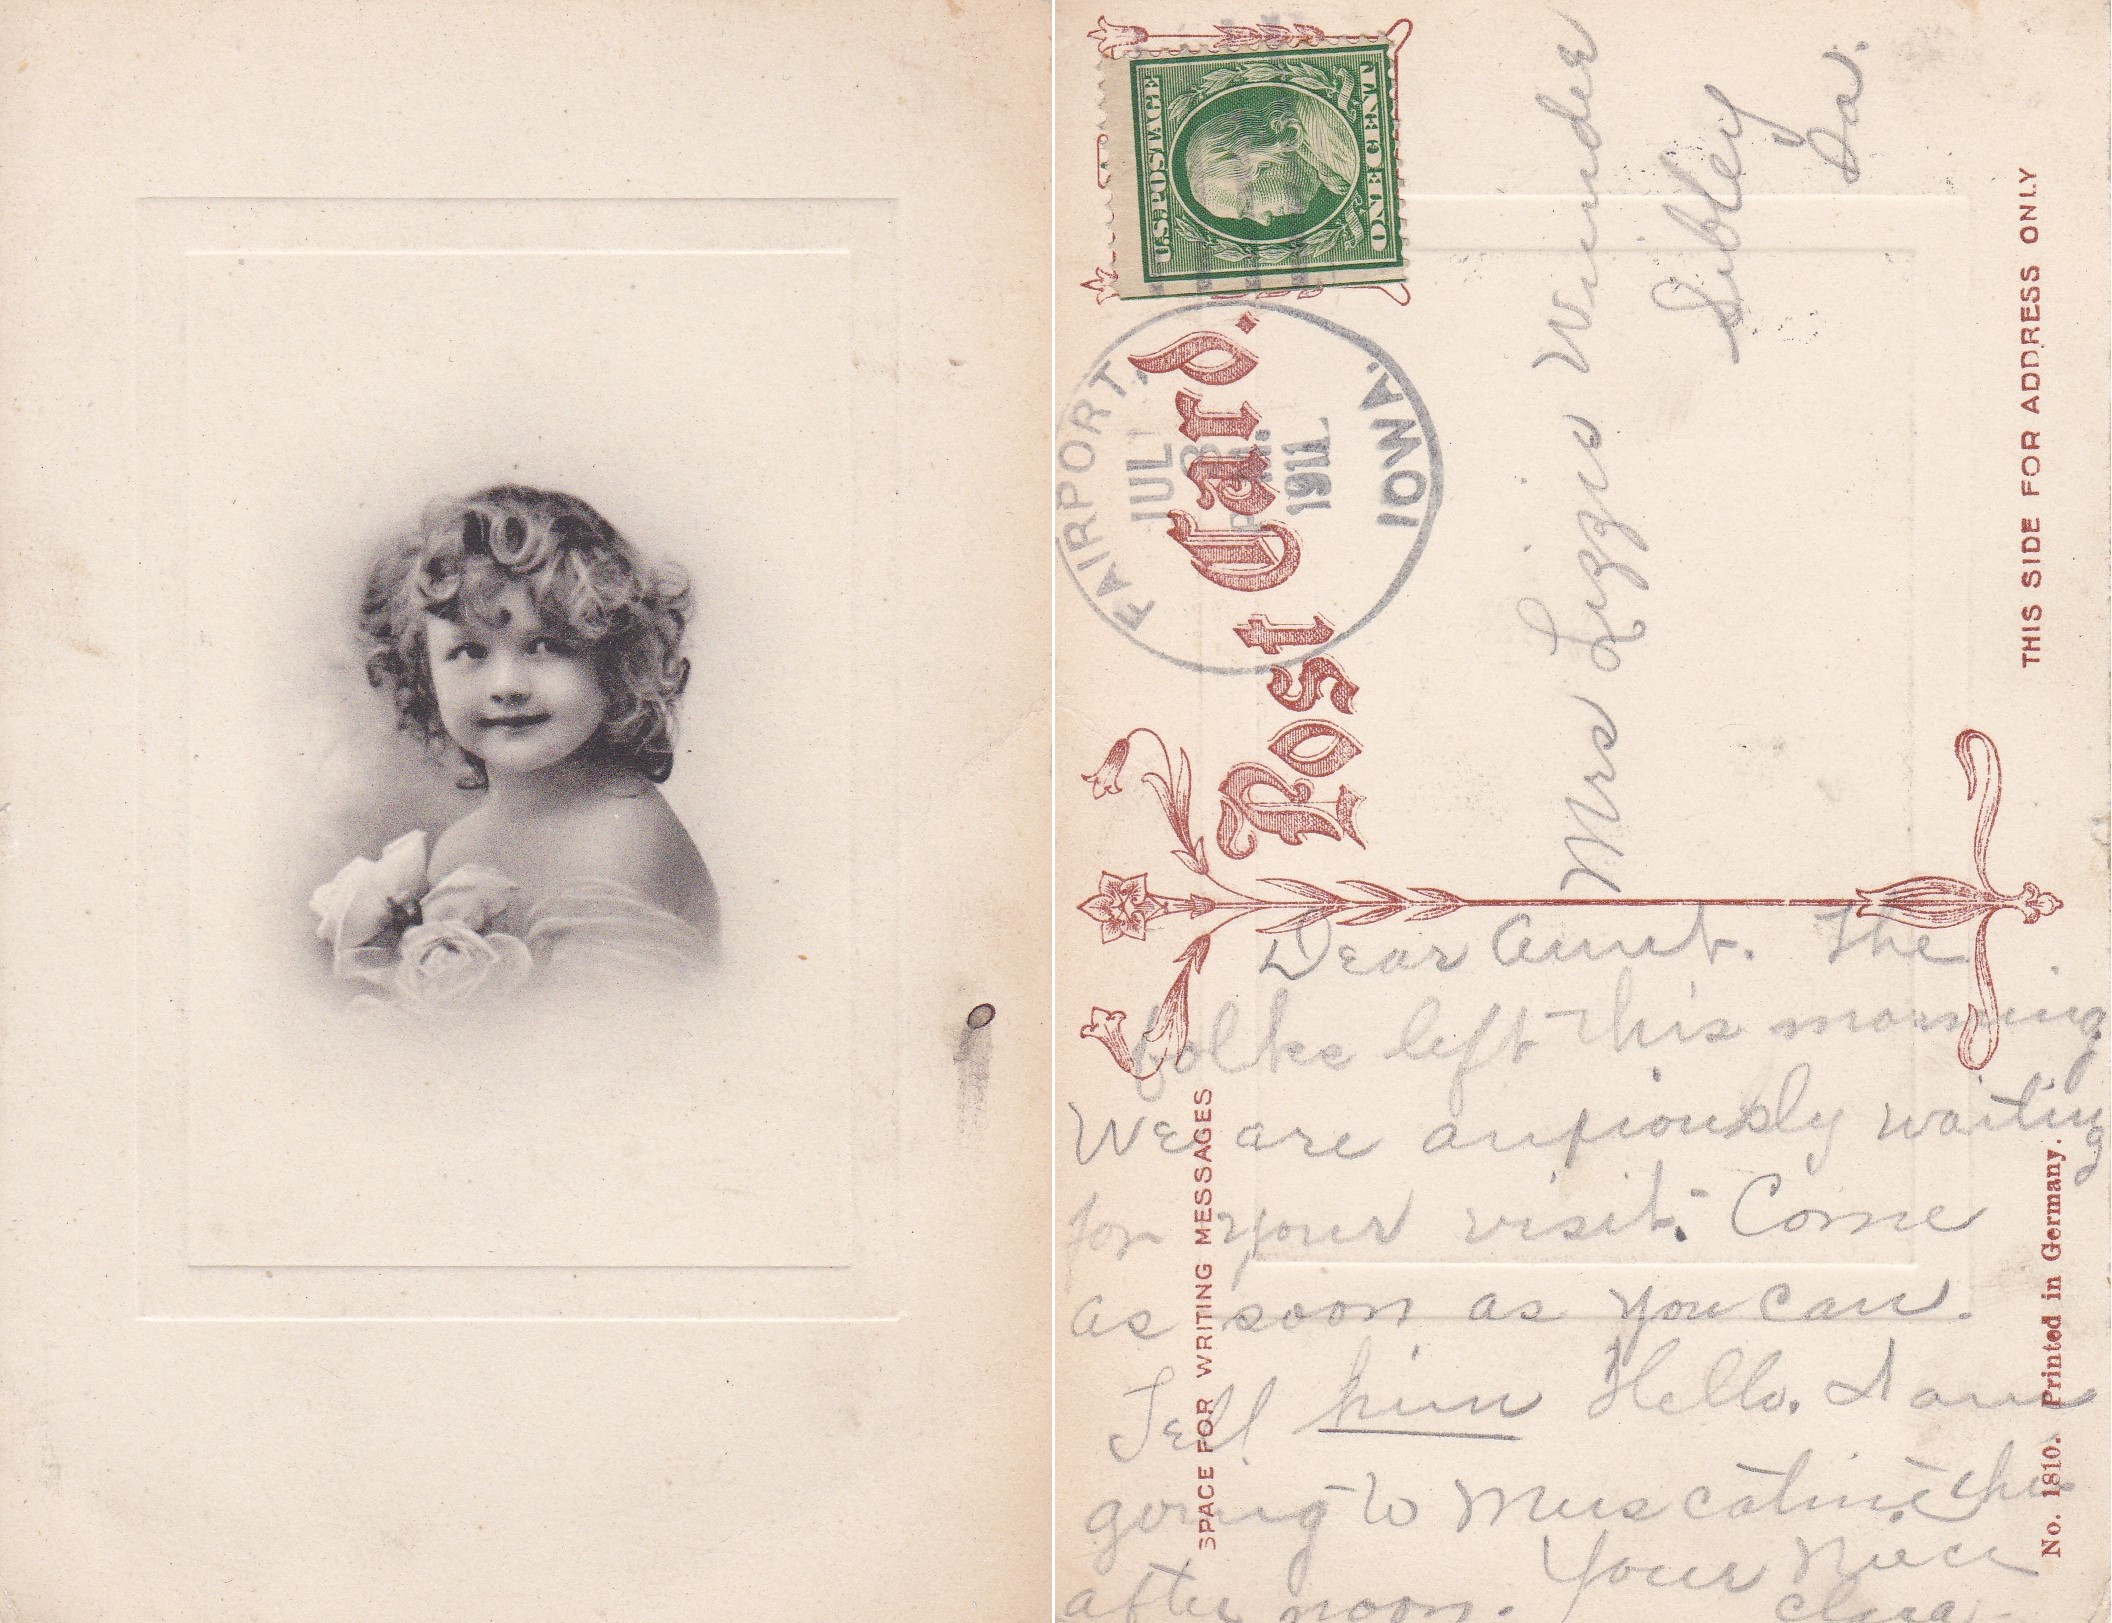 U.S. POSTAGE
ONE CENT
FAIRPORT,
JUL
3
P.M.
1911
IOWA.
Post Card.
THIS SIDE FOR ADDRESS ONLY
Mrs Lizzie Wunder
Sibley
Ia.
SPACE FOR WRITING MESSAGES
Dear Aunt. The
folks left this morning.
We are anxiously waiting
for your visit. Come
as soon as you can.
Tell him Hello. I am
going to Muscatine this
after noon. Your Niece
Clara
No. 1810. Printed in Germany.